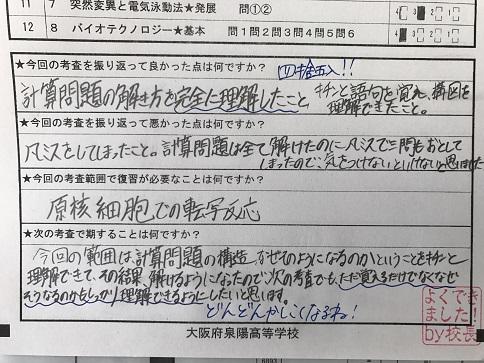 11 7 突然変異と電気泳動法★発展 問①②
12 8 バイオテクノロジー★基本 問1問2問3問4問5問6
★今回の考査を振り返って良かった点は何ですか?
四捨五入!!
計算問題の解き方を完全に理解したこと、キチンと語句を覚え、構図を
理解できたこと。
★今回の考査を振り返って悪かった点は何ですか?
凡ミスをしてしまったこと。計算問題は全て解けたのに凡ミスで三問もおとして
しまったので気をつけないといけないと思いました
★今回の考査範囲で復習が必要なことは何ですか?
原核細胞での転写反応
★次の考査で期することは何ですか?
今回の範囲は計算問題の構造、なぜそのようになるのかということをキチンと
理解できて、その結果、解けるようになったので次の考査でも、ただ覚えるだけでなくなぜ
そうなるのかもしっかり理解できるようにしたいと思います。
どんどんかしこくなるね!
よくでき
ました!
by校長
大阪府泉陽高等学校